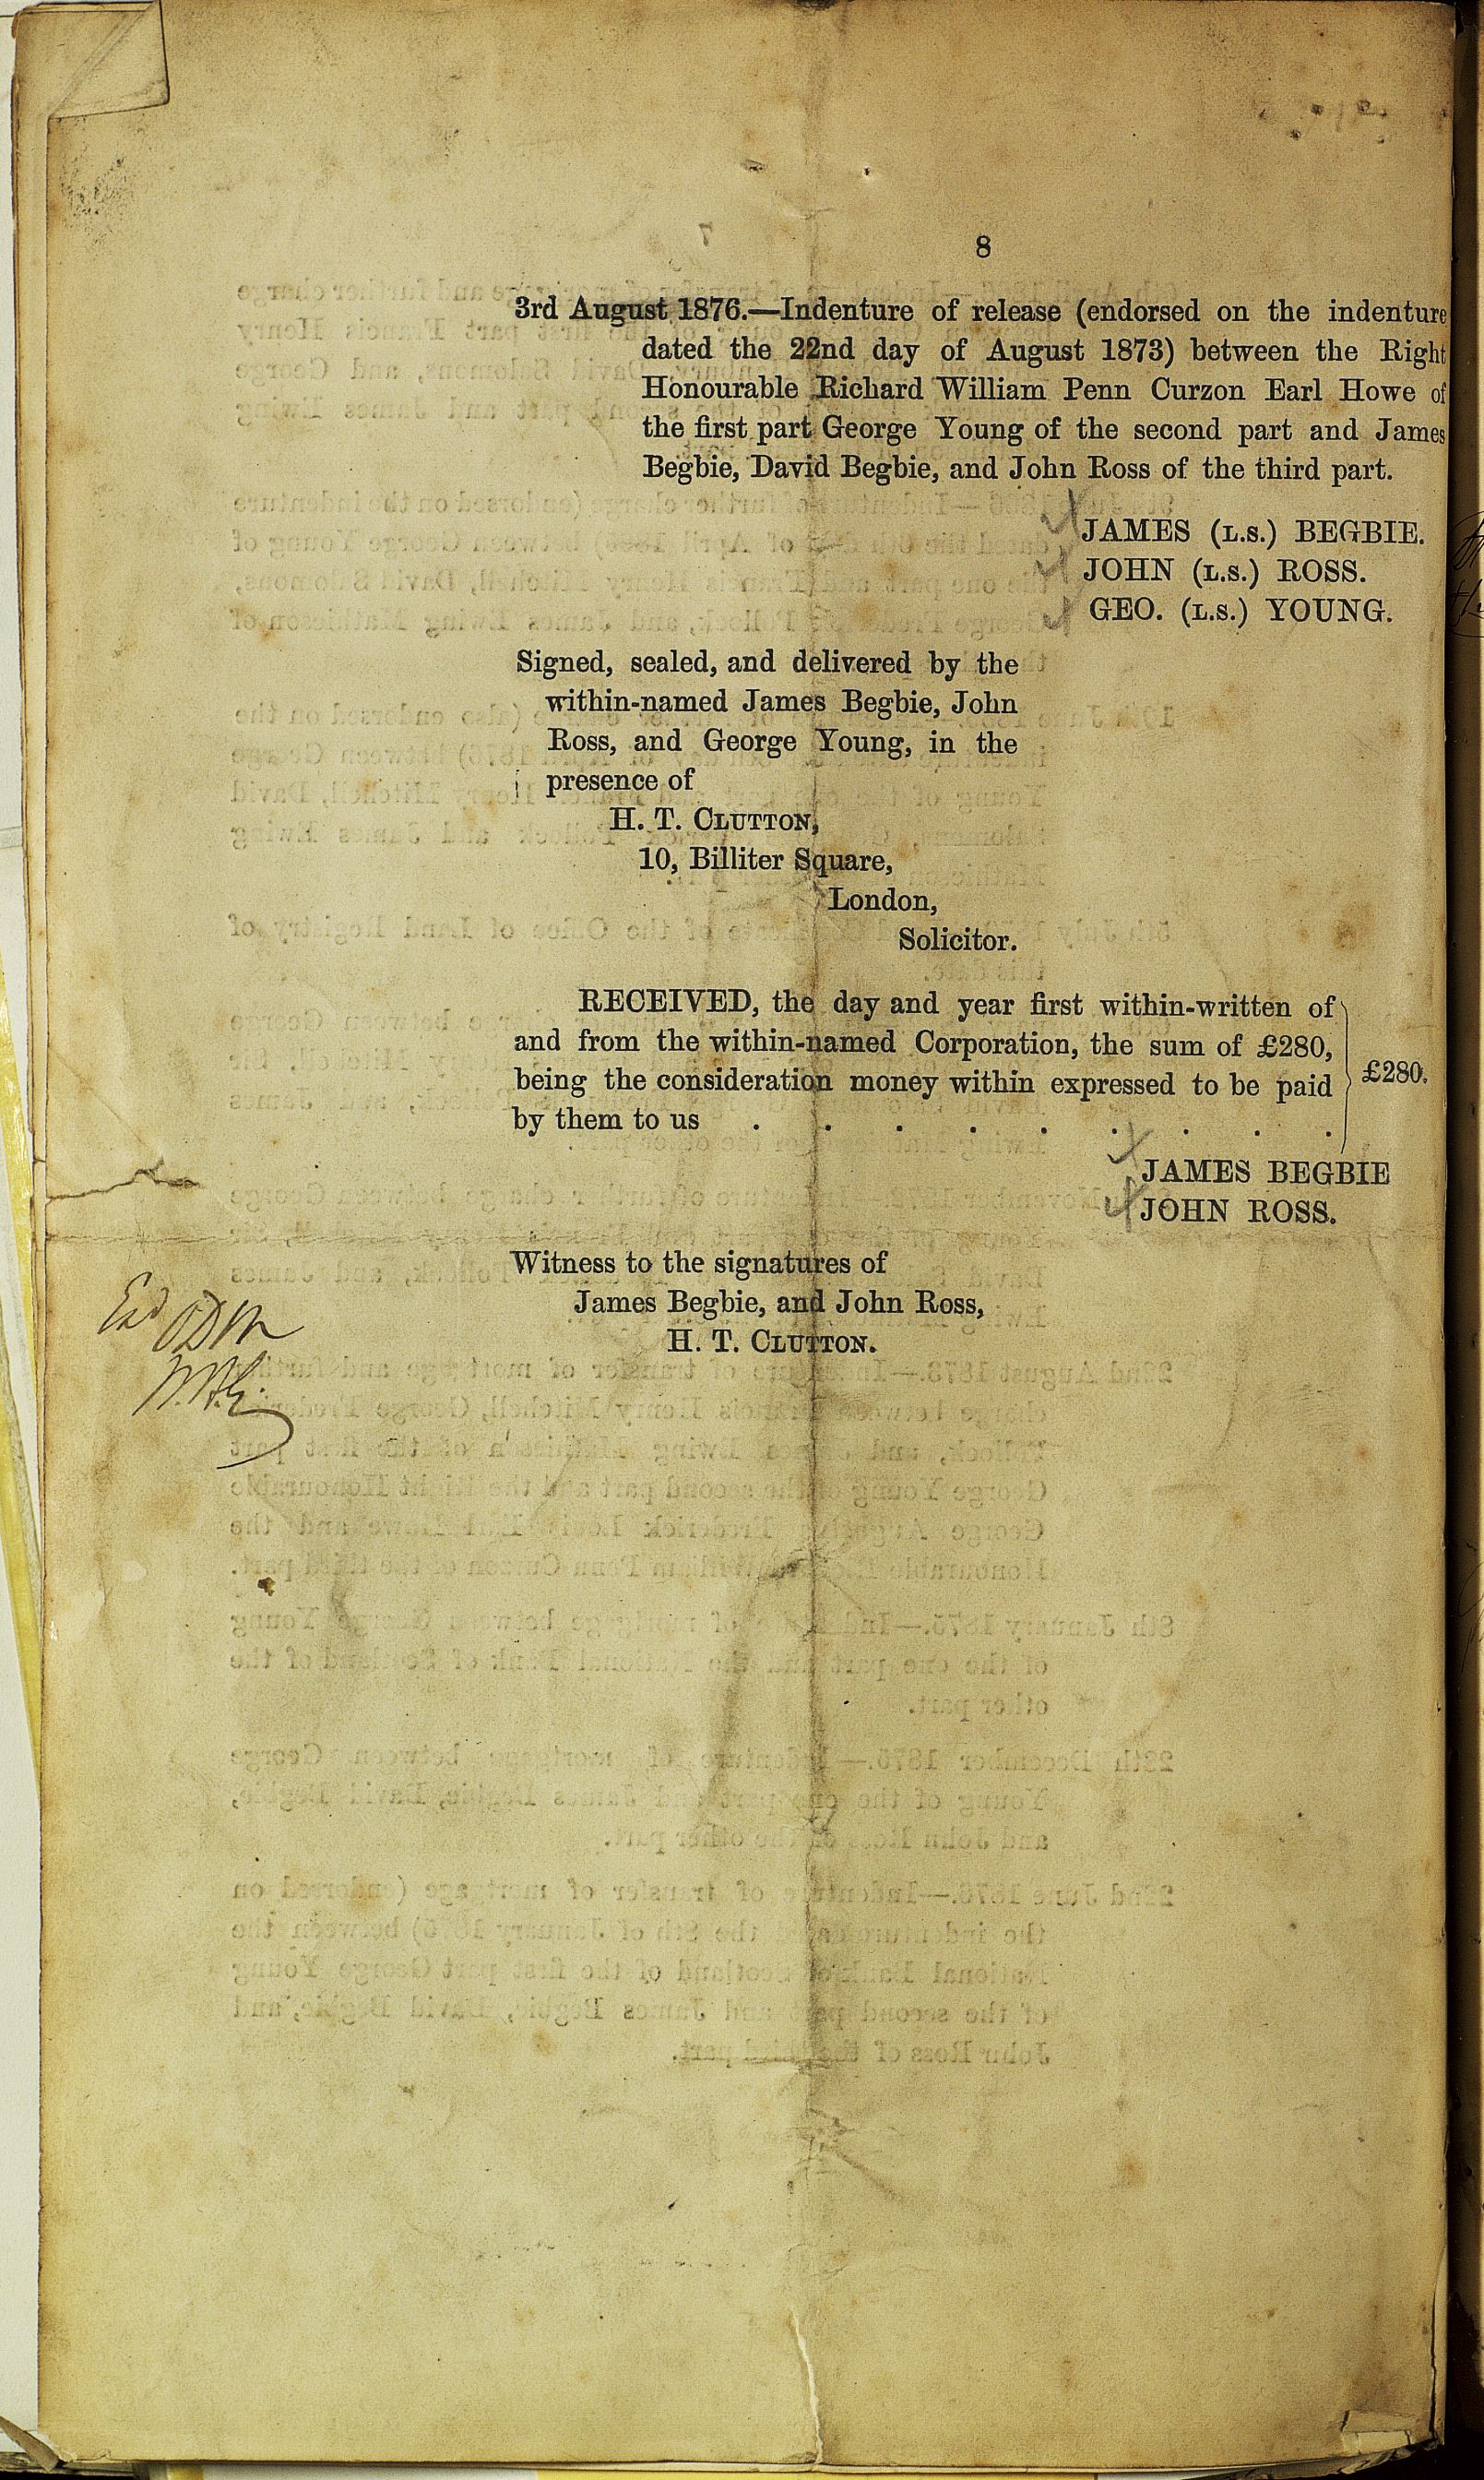 8
3rd August 1876.—Indenture of release (endorsed on the indenture
dated the 22nd day of August 1873) between the Right
Honourable Richard William Penn Curzon Earl Howe of
the first part George Young of the second part and James
Begbie, David Begbie, and John Ross of the third part.
JAMES (L.S.) BEGBIE.
JOHN (L.S.) ROSS.
GEO. (L.S.) YOUNG.
Signed, sealed, and delivered by the
within-named James Begbie, John
Ross, and George Young, in the
presence of
H. T. CLUTTON,
10, Billiter Square,
London,
Solicitor.
RECEIVED, the day and year first within-written of
and from the within-named Corporation, the sum of £280,
being the consideration money within expressed to be paid
by them to us . . . . . . . . .
£280.
JAMES BEGBIE
JOHN ROSS.
Witness to the signatures of
James Begbie, and John Ross,
H. T. CLUTTON.